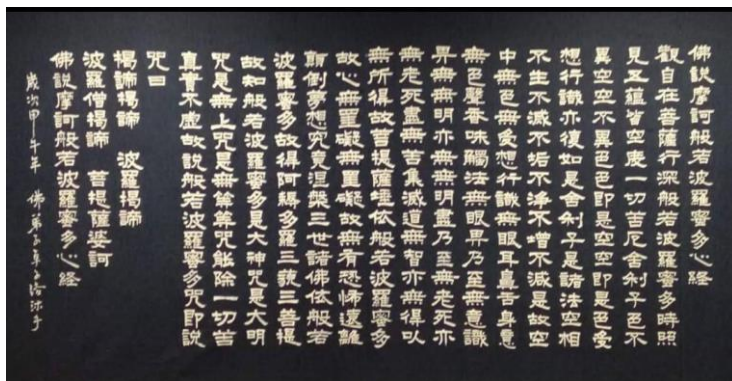 佛說摩訶般若波羅蜜多心經
觀自在菩薩行深般若波羅蜜多時照
見五蘊皆空度一切苦厄舍利子色不
異空空不異色色即是空空即是色受
想行識亦復如是舍利子是諸法空相
不生不滅不垢不淨不增不減是故空
中無色無受想行識無眼耳鼻舌身意
無色聲香味觸法無眼界乃至無意識
界無無明亦無無明盡乃至無老死亦
無老死盡無苦集滅道無智亦無得以
無所得故菩提薩埵依般若波羅蜜多
故心無罣礙無罣礙故無有恐怖遠離
顛倒夢想究竟涅槃三世諸佛依般若
波羅蜜多故得阿耨多羅三藐三菩提
故知般若波羅蜜多是大神咒是大明
咒是無上咒是無等等咒能除一切苦
真實不虛故說般若波羅蜜多咒即說
咒曰
揭諦揭諦 波羅揭諦
波羅僧揭諦 菩提薩婆訶
佛說摩訶般若波羅蜜多心經
歲次甲午年 佛弟子